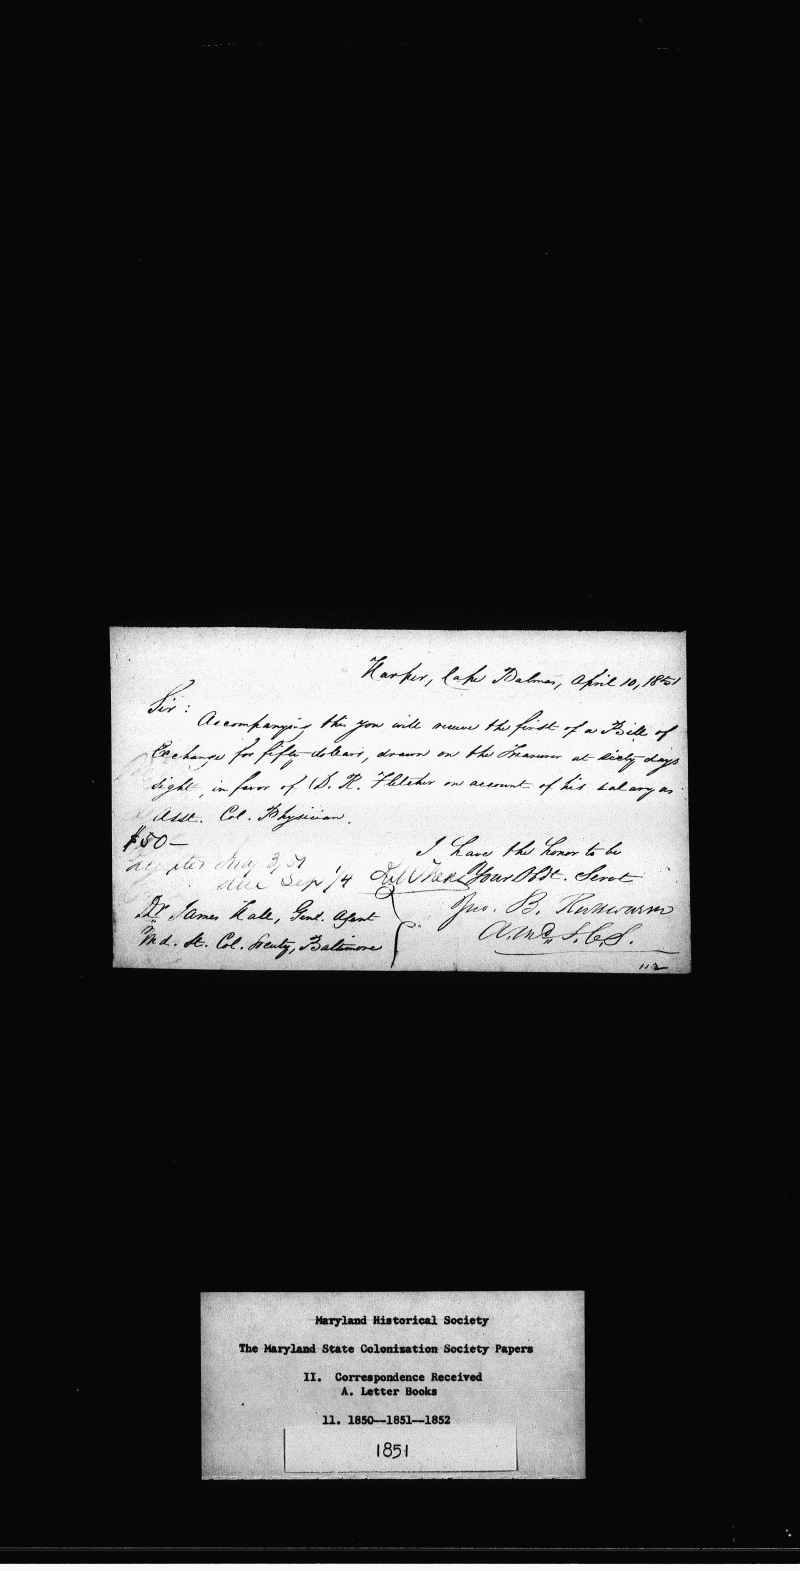 Harper, Cape Palmas, April 10, 1851
Sir:
Accompanying this you will receive the first of a Bill of
Exchange for fifty dollars, drawn on the Treasurer at sixty days
sight, in favor of D. R. Fletcher on account of his salary as
Asst. Col. Physician.
$50—
I have the honor to be
Accepted Aug 3, 51
due Sep 1/4
Your Obdt. Servt
Jno. B. Russwurm
A. Md. S. C. S.
Dr. James Hall, Genl. Agent
Md. St. Col. Society, Baltimore
112
Maryland Historical Society
The Maryland State Colonization Society Papers
II. Correspondence Received
A. Letter Books
11. 1850--1851--1852
1851